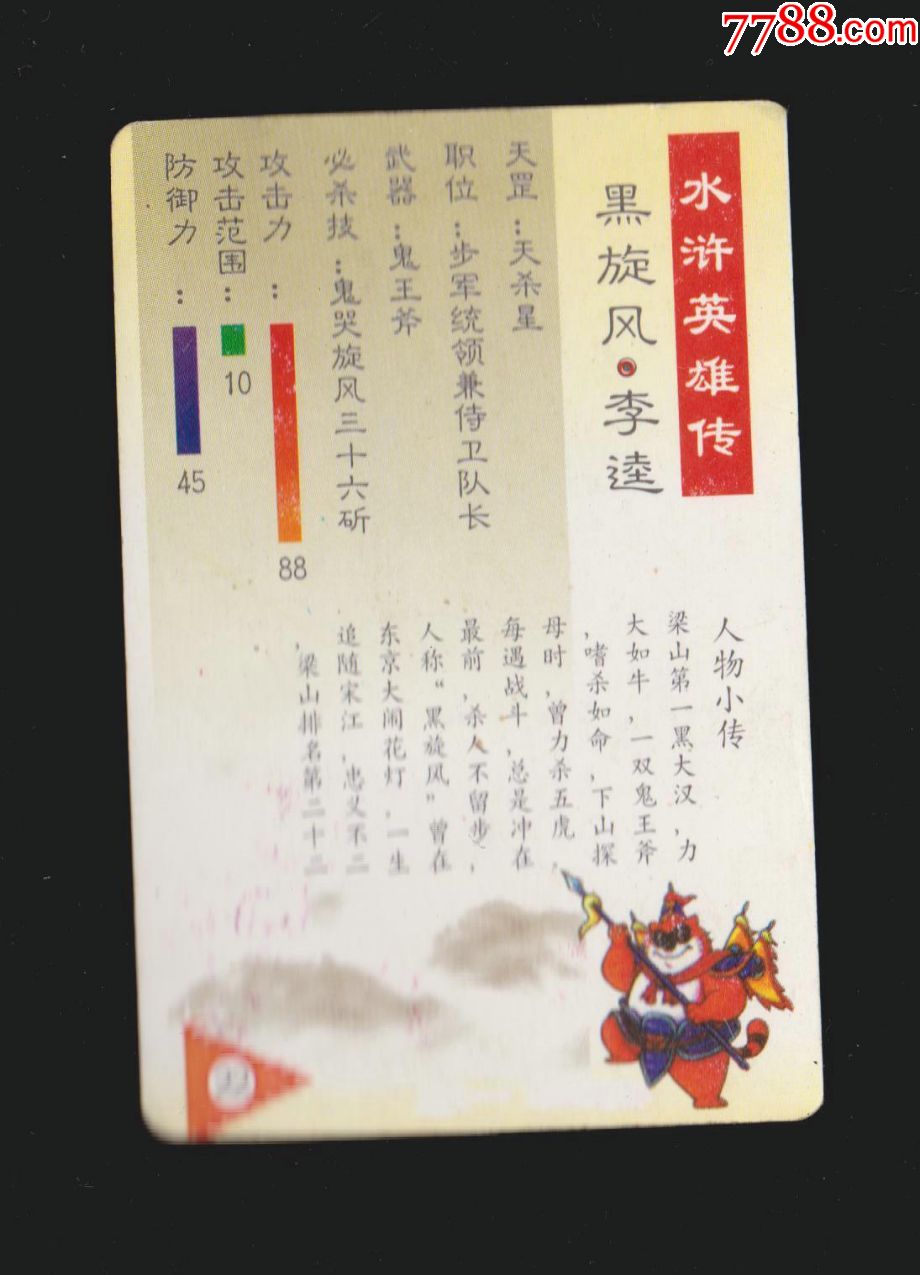 7788.com
水浒英雄传
黑旋风·李逵
天罡:天杀星
职位:步军统领兼侍卫队长
武器:鬼王斧
必杀技:鬼哭旋风三十六斫
攻击力:
88
攻击范围:
10
防御力:
45
人物小传
梁山第一黑大汉,力
大如牛,一双鬼王斧
,嗜杀如命,下山探
母时,曾力杀五虎,
每遇战斗,总是冲在
最前,杀人不留步,
人称“黑旋风”曾在
东京大闹花灯,一生
追随宋江,忠义不二
,梁山排名第二十二
22